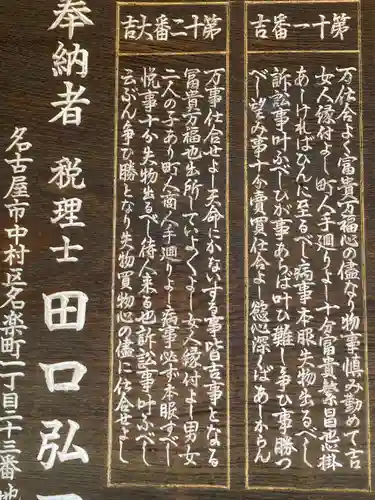 第十一番吉
万仕合よく富貴万福心の儘なり物事慎み勤めて吉
女人縁付よし町人手廻りよし十分富貴繁昌也心掛
あしければひんに至るべし病事本服失物出るべし
訴訟事叶ふべしひが事あらば叶ひ難し争ひ事勝つ
べし望み事十分賣買仕合よし慾心深くばあしからん
第十二番大吉
万事仕合せよし天命にかないする事皆吉事となる
冨貴万福也出所していよくよし女人縁付よし男女
二人の子あり町人商人手廻りよし病事必ず本服すべし
悦事十分失物出るべし待人来る也訴訟事叶ふべし
云ぶん争ひ勝となり失物買物心の儘に仕合せよし
奉納者 税理士 田口弘
名古屋市中村区名楽町一丁目二十三番地